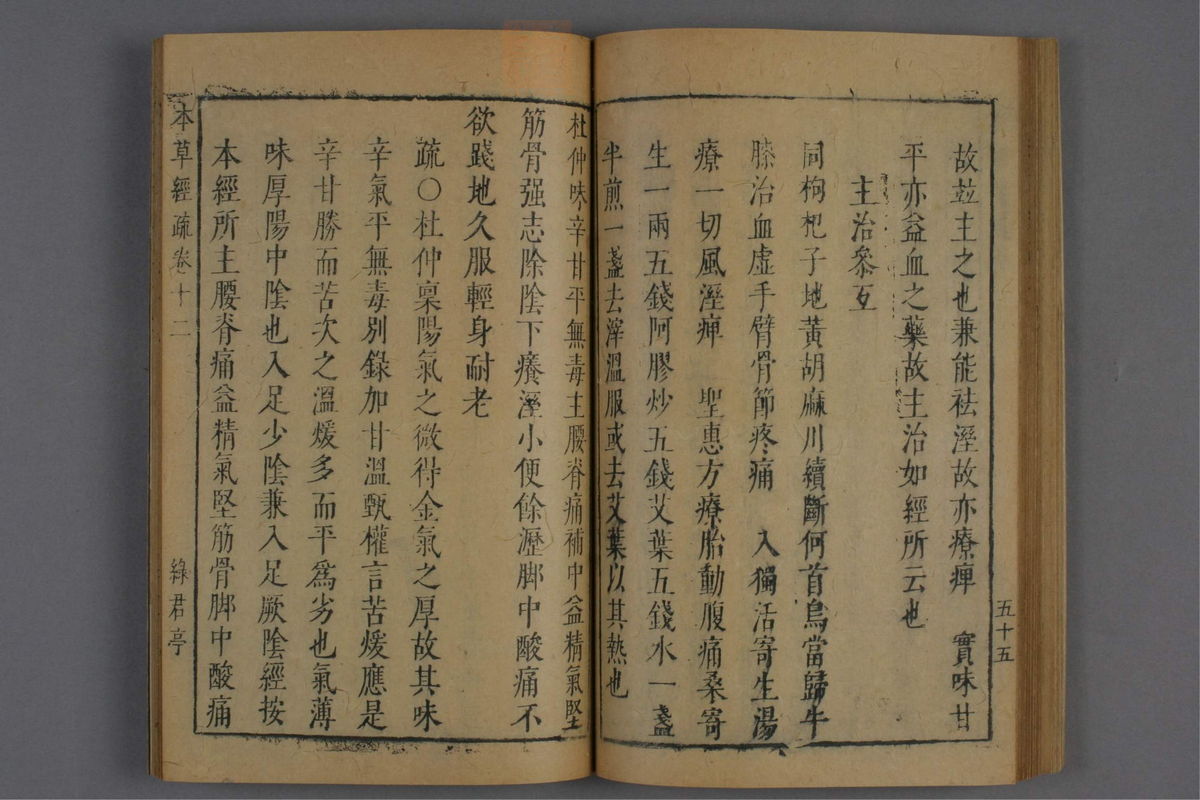 五十五
故並主之也兼能祛溼故亦療痺　實味甘
平亦益血之藥故主治如經所云也
主治參互
同枸杞子地黃胡麻川續斷何首烏當歸牛
膝治血虛手臂骨節疼痛　入獨活寄生湯
療一切風溼痺　聖惠方療胎動腹痛桑寄
生一兩五錢阿膠炒五錢艾葉五錢水一盞
半煎一盞去滓溫服或去艾葉以其熱也
杜仲味辛甘平無毒主腰脊痛補中益精氣堅
筋骨强志除陰下癢溼小便餘瀝脚中酸痛不
欲踐地久服輕身耐老
疏〇杜仲稟陽氣之微得金氣之厚故其味
辛氣平無毒別錄加甘溫甄權言苦煖應是
辛甘勝而苦次之溫煖多而平爲劣也氣薄
味厚陽中陰也入足少陰兼入足厥陰經按
本經所主腰脊痛益精氣堅筋骨脚中酸痛
本草經疏卷十二
綠君亭